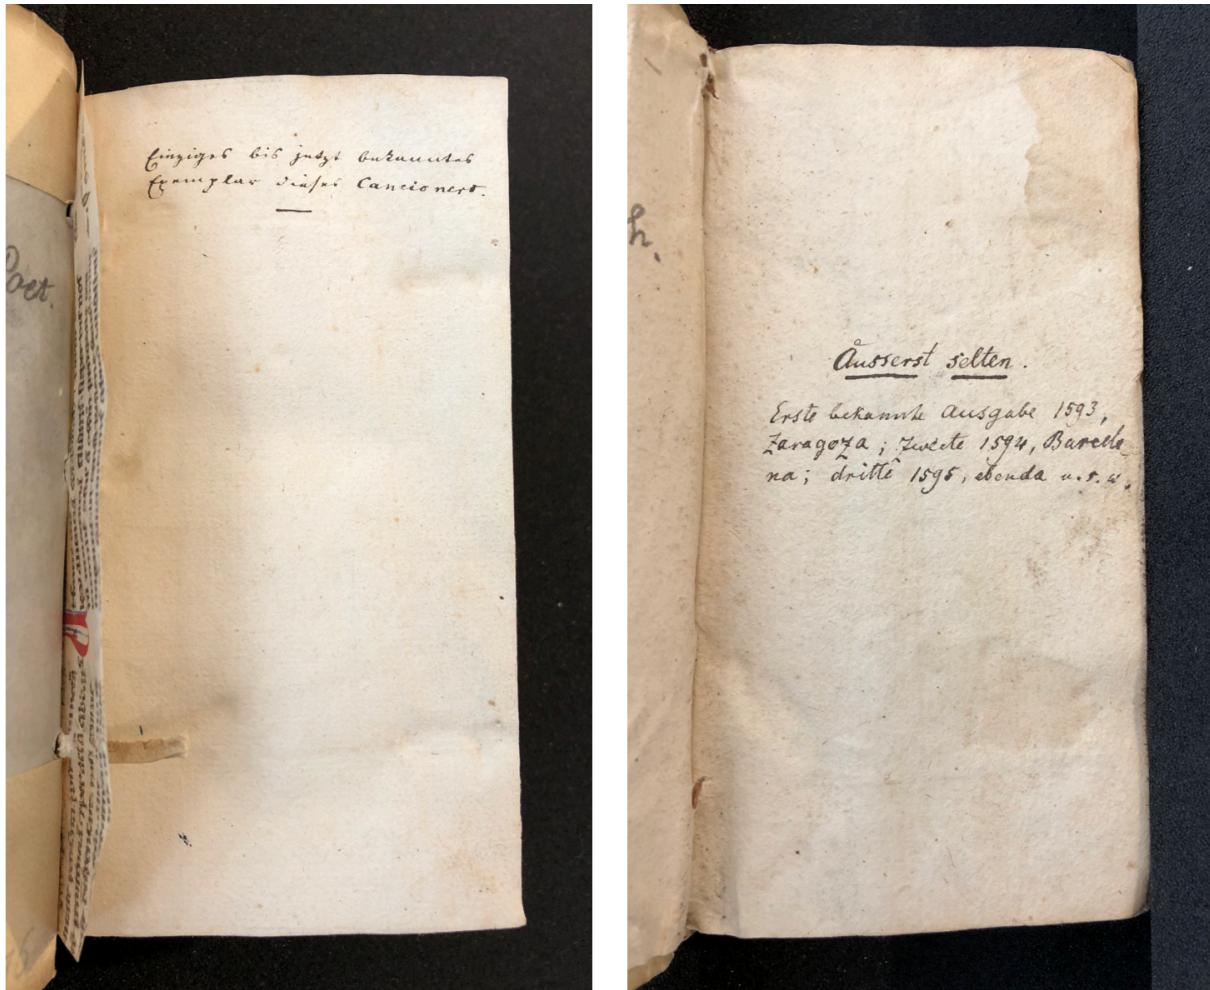 Einziges bis jetzt bekanntes
Exemplar dieses Cancionero.
Poet.
h.
Äusserst selten.
Erste bekannte Ausgabe 1593,
Zaragoza; zweite 1594, Barcelo-
na; dritte 1595, ebenda u. s. w.